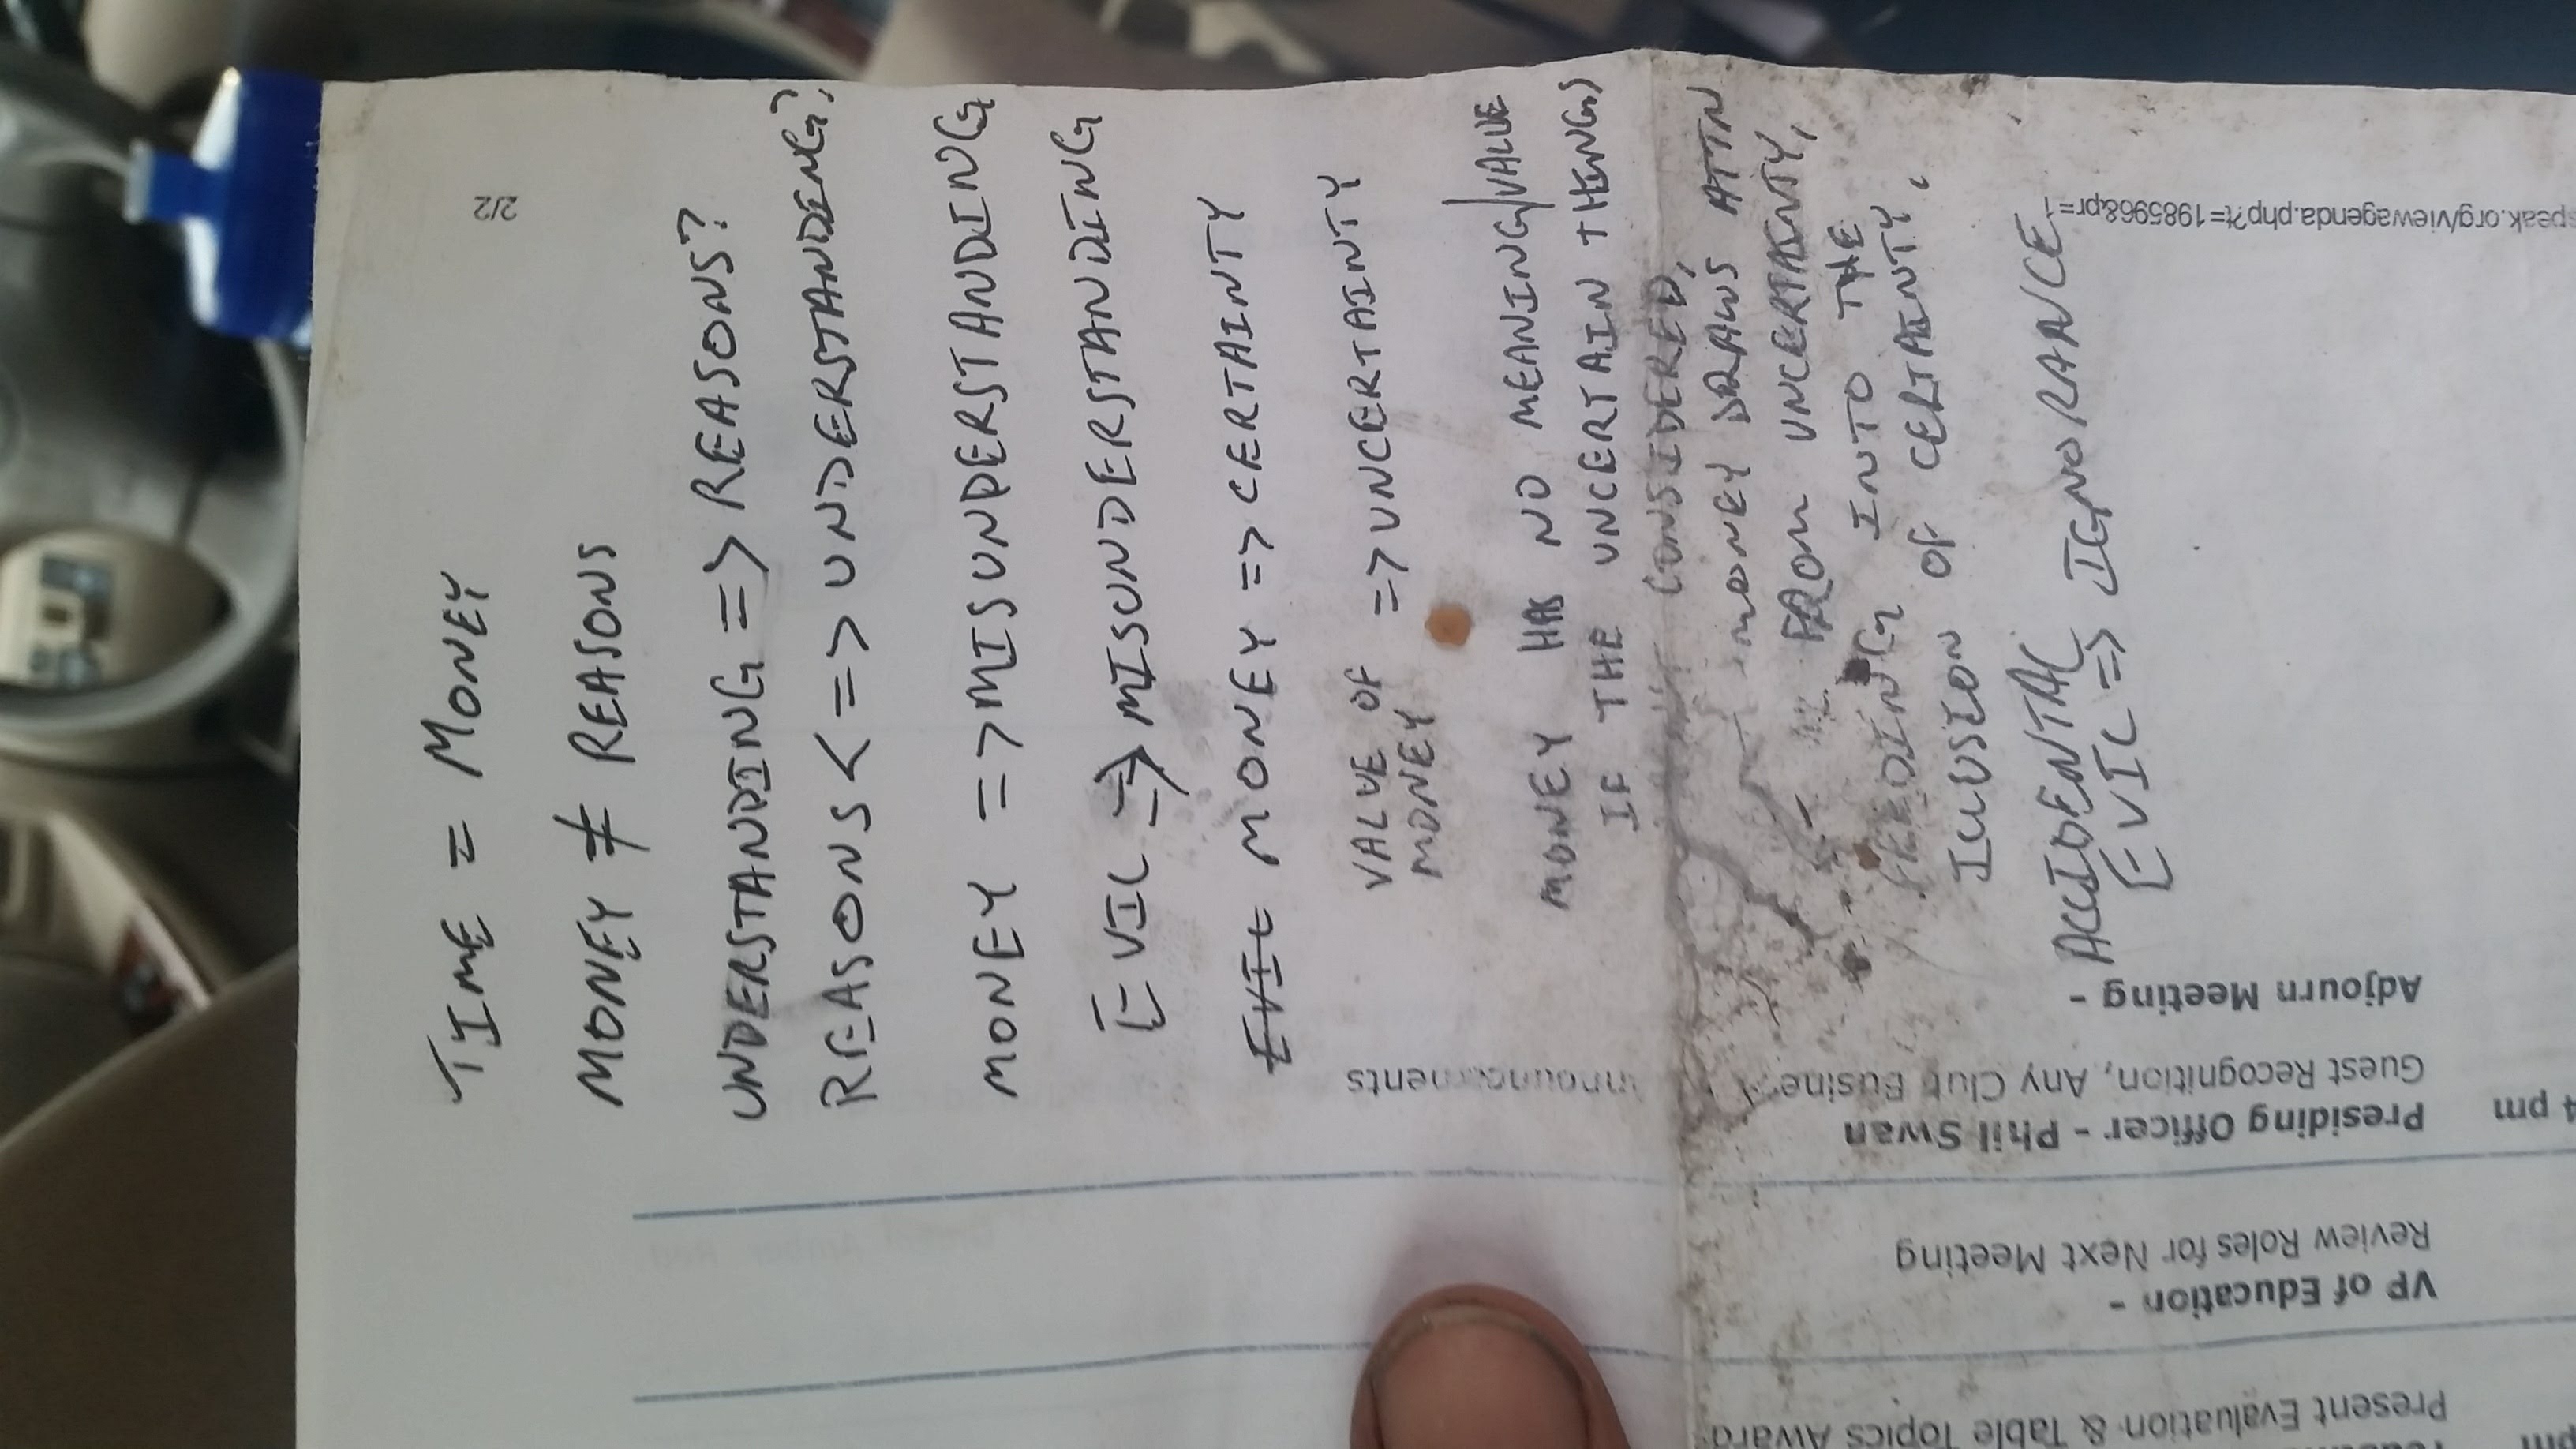 TIME = MONEY
MONEY ≠ REASONS
UNDERSTANDING => REASONS?
REASONS <=> UNDERSTANDING?
MONEY => MISUNDERSTANDING
EVIL => MISUNDERSTANDING
EVIL MONEY => CERTAINTY
VALUE OF
MONEY => UNCERTAINTY
MONEY HAS NO MEANING/VALUE
IF THE UNCERTAIN THINGS
CONSIDERED,
MONEY DRAWS ATTN
FROM UNCERTAINTY,
FEEDING INTO THE
ILLUSION OF CERTAINTY.
ACCIDENTAL
EVIL => IGNORANCE
2/2
Present Evaluation & Table Topics Award
VP of Education -
Review Roles for Next Meeting
4 pm
Presiding Officer - Phil Swan
Guest Recognition, Any Club Business
Announcements
Adjourn Meeting -
speak.org/viewagenda.php?t=198596&pr=1